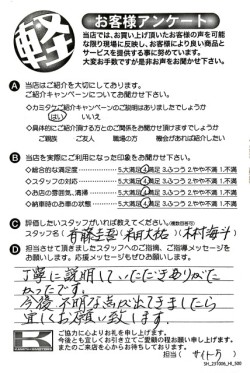 軽
お客様アンケート
当店では、お買い上げ頂いたお客様の声を可能
な限り現場に反映し、お客様により良い商品と
サービスを提供する事に努めています。
大変お手数ですが是非お声をお聞かせ下さい。
A 当店はご紹介を大切にしております。
ご紹介キャンペーンについてお聞かせ下さい。
◇カミタケご紹介キャンペーンの説明はありましたでしょうか
はい いいえ
◇具体的にご紹介頂ける方とのご関係をお聞かせ頂けますでしょうか
ご親族 ご友人 職場の方 機会があれば紹介したい
B 当店を実際にご利用になった印象をお聞かせ下さい。
◇総合的な満足度 5.大満足 4.満足 3.ふつう 2.やや不満 1.不満
◇スタッフの対応 5.大満足 4.満足 3.ふつう 2.やや不満 1.不満
◇お店の雰囲気、清掃 5.大満足 4.満足 3.ふつう 2.やや不満 1.不満
◇納車時のお車の状態 5.大満足 4.満足 3.ふつう 2.やや不満 1.不満
C 評価したいスタッフがいれば教えてください。(複数回答可)
スタッフ名( 斉藤圭吾 和田大祐 )( 木村海子 )
D 担当させて頂きましたスタッフへのご指摘、ご指導メッセージを
お願いします。応援メッセージもぜひお願いします。
丁寧に説明していただきありがた
かったです。
今後、不明な点が出てきましたら
宜しくお願い致します。
K
ご協力に心よりお礼を申し上げます。
今後とも宜しくお引き立てご愛顧の程お願い申し上げます。
またのご来店を心からお待ちしております。
担当( サイトウ )